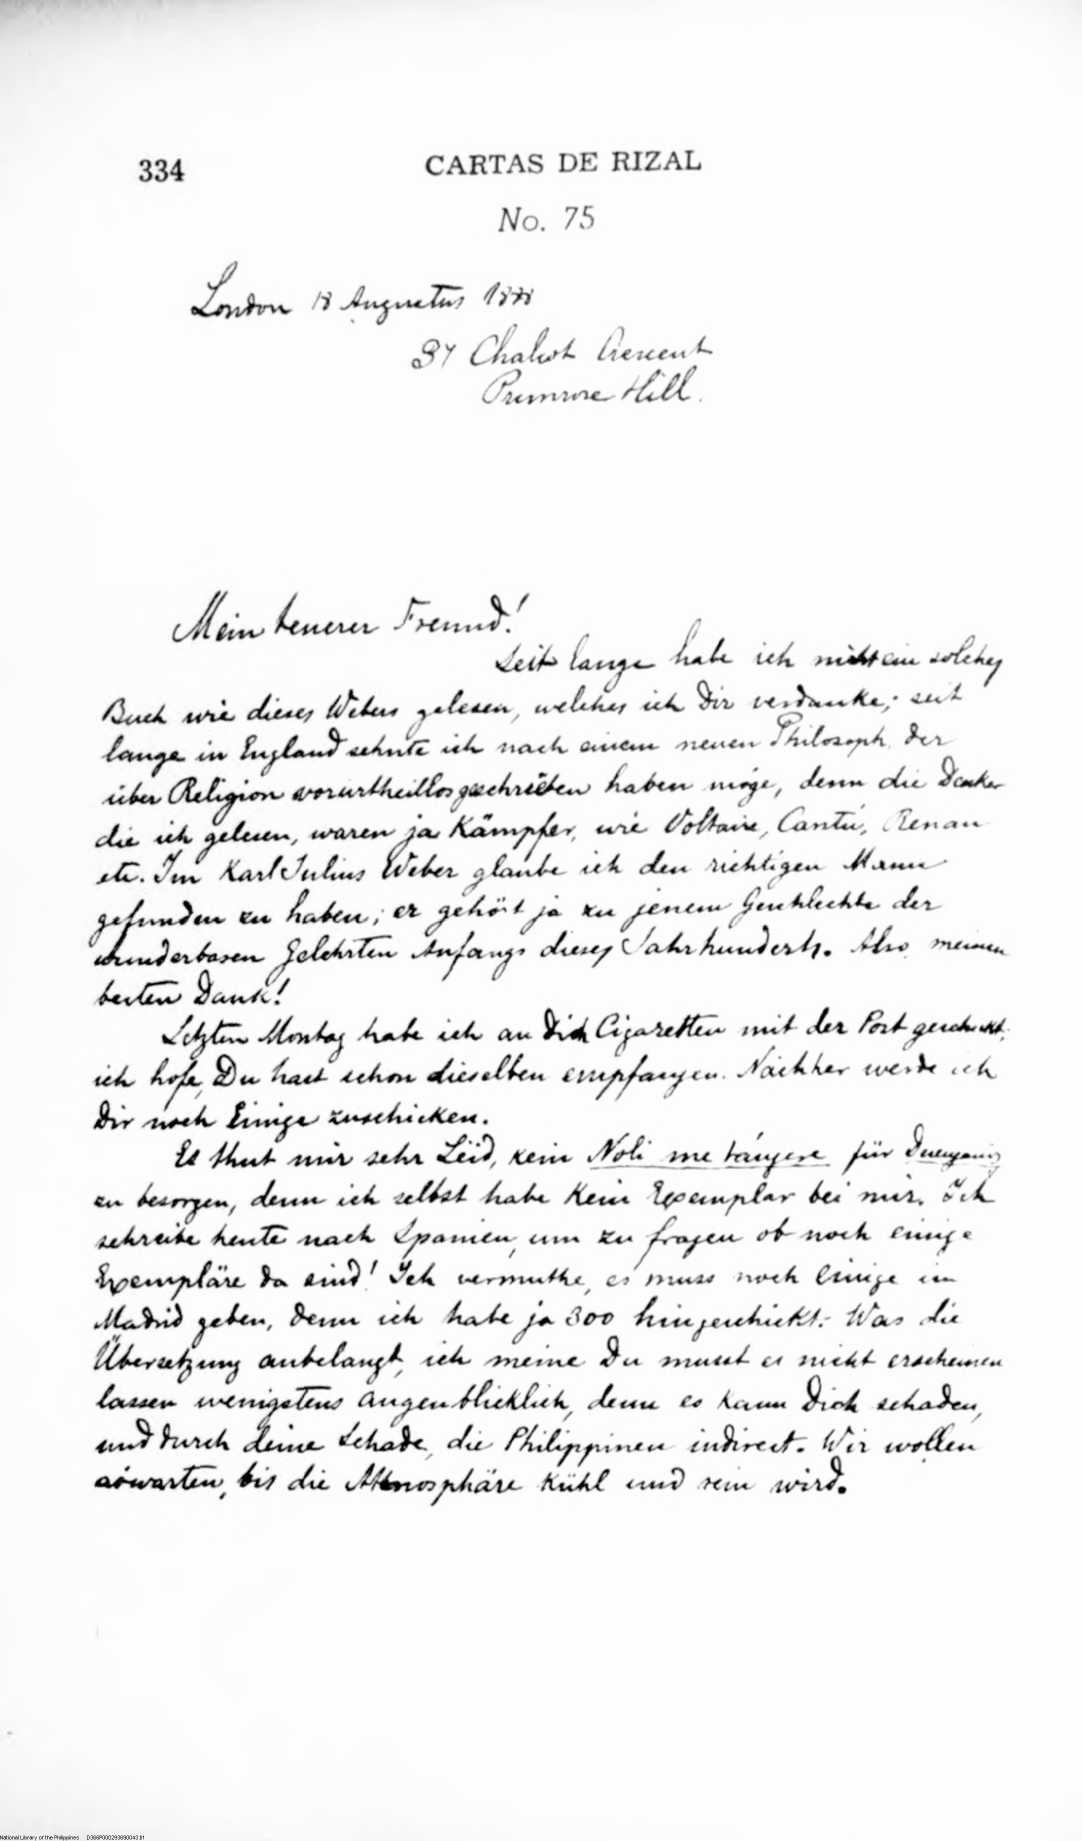 334
CARTAS DE RIZAL
No. 75
London 18 Augustus 1888
37 Chalcot Crescent
Primrose Hill.
Mein teuerer Freund!
Seit lange habe ich nicht ein solches
Buch wie dieses Webers gelesen, welches ich Dir verdanke; seit
lange in England sehnte ich nach einem neuen Philosoph, der
über Religion vorurtheillos geschrieben haben möge, denn die Denker
die ich gelesen, waren ja Kämpfer, wie Voltaire, Cantú, Renan
etc. Im Karl Julius Weber glaube ich den richtigen Mann
gefunden zu haben; er gehört ja zu jenem Geschlechte der
wunderbaren Gelehrten Anfangs dieses Jahrhunderts. Also meinen
besten Dank!
Letzten Montag habe ich an Dich Cigaretten mit der Post geschickt;
ich hofe, Du hast schon dieselben empfangen. Nachher werde ich
Dir noch Einige zuschicken.
Es thut mir sehr Leid, kein Noli me tángere für
zu besorgen, denn ich selbst habe kein Exemplar bei mir. Ich
schreibe heute nach Spanien, um zu fragen ob noch einige
Exempläre da sind! Ich vermuthe, es muss noch Einige in
Madrid geben, denn ich habe ja 300 hingeschickt. Was die
Übersetzung anbelangt, ich meine Du musst es nicht erscheinen
lassen wenigstens augenblicklich, denn es kann Dich schaden,
und durch deine Schade, die Philippinen indirect. Wir wollen
abwarten, bis die Atmosphäre kühl und rein wird.
National Library of the Philippines